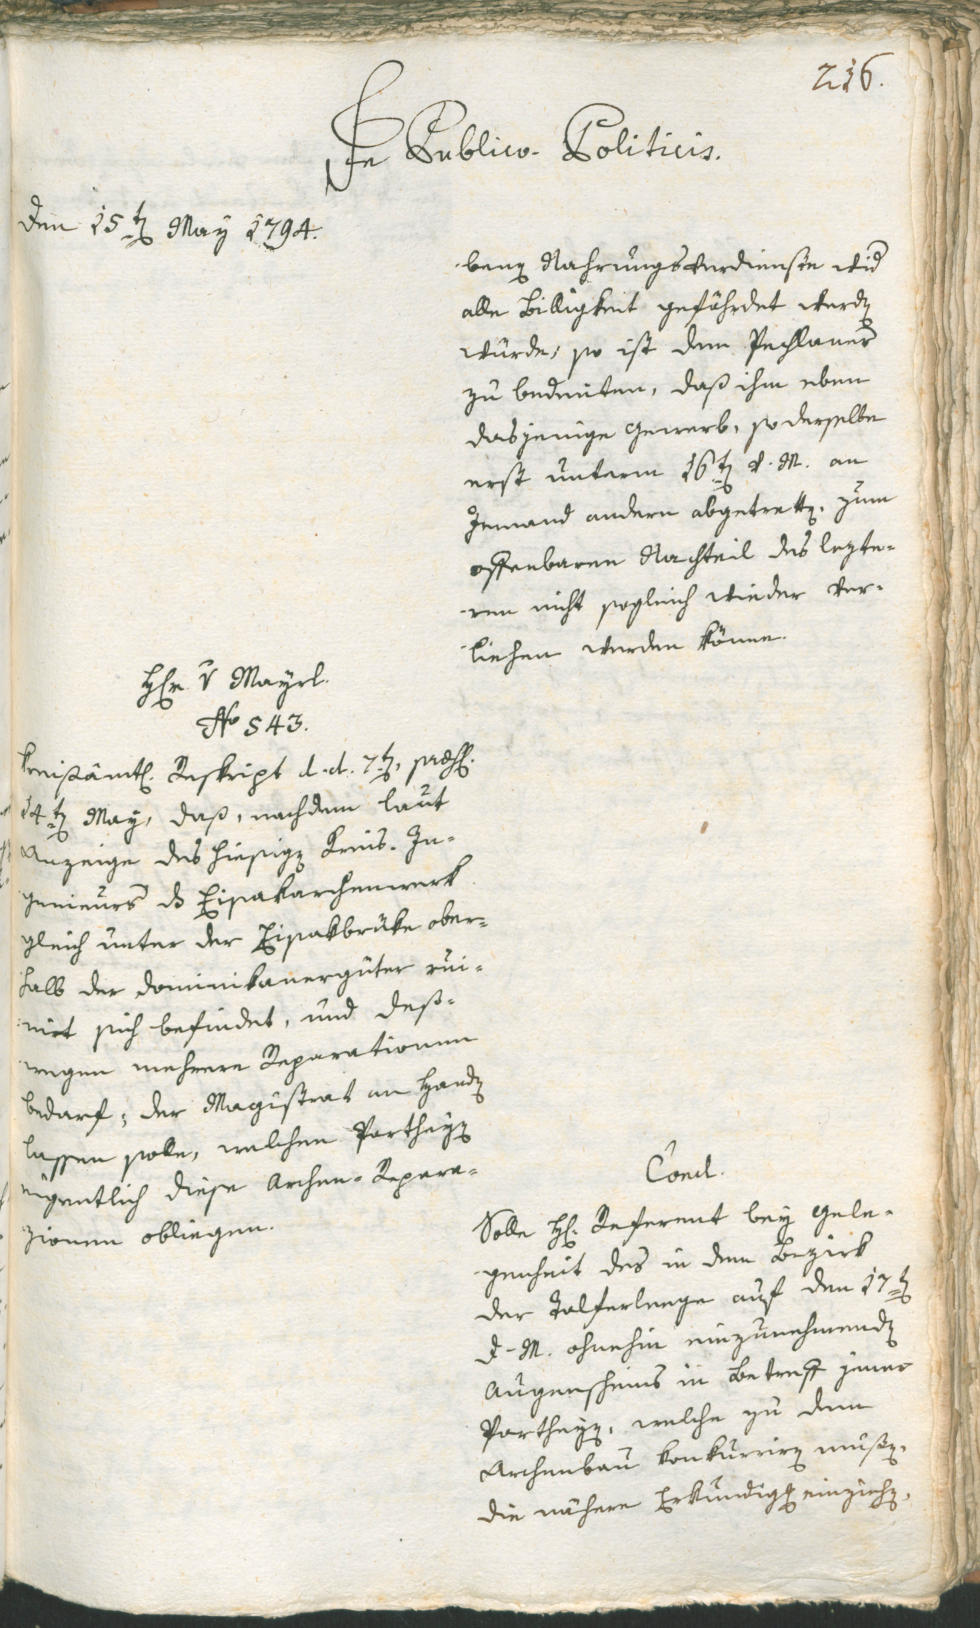 236.
In Publico-Politicis.
Den 15ten May 1794.
beny Nahrungsverdienste wid
alle Billigkeit gefährdet werden
würde, so ist dem Pechlaner
zu bedeuten, daß ihm eben
dasjenige Gewerb, so derselbe
erst unterm 16ten v. M. an
Jemand andern abgetretten, zum
offenbaren Nachteil des lezte-
ren nicht sogleich wieder ver-
liehen werden könne.
Hr. v Mayrl.
No 543.
Kreißämtl. Reskript d. d. 7ten,
14ten May, daß, nachdem laut
Anzeige des hiesigen Kreis-In-
genieurs dz Eisakarchenwerk
gleich unter der Eisakbrüke ober-
halb der Dominikanergüter rui-
nirt sich befindet, und deß-
wegen mehrere Reparationen
bedarf, der Magistrat an Handen
lassen solle, welchen Partheyen
eigentlich diese Archen-Repara-
zionen obliegen.
Concl.
Solle H. Referent bey Gele-
genheit des in dem Bezirk
der Talferleege auf den 17ten
d. M. ohnehin einzunehmenden
Augenscheins in Betreff jener
Partheyen, welche zu dem
Archenbau konkurriren müßen,
die nähere Erkundigung einziehen,